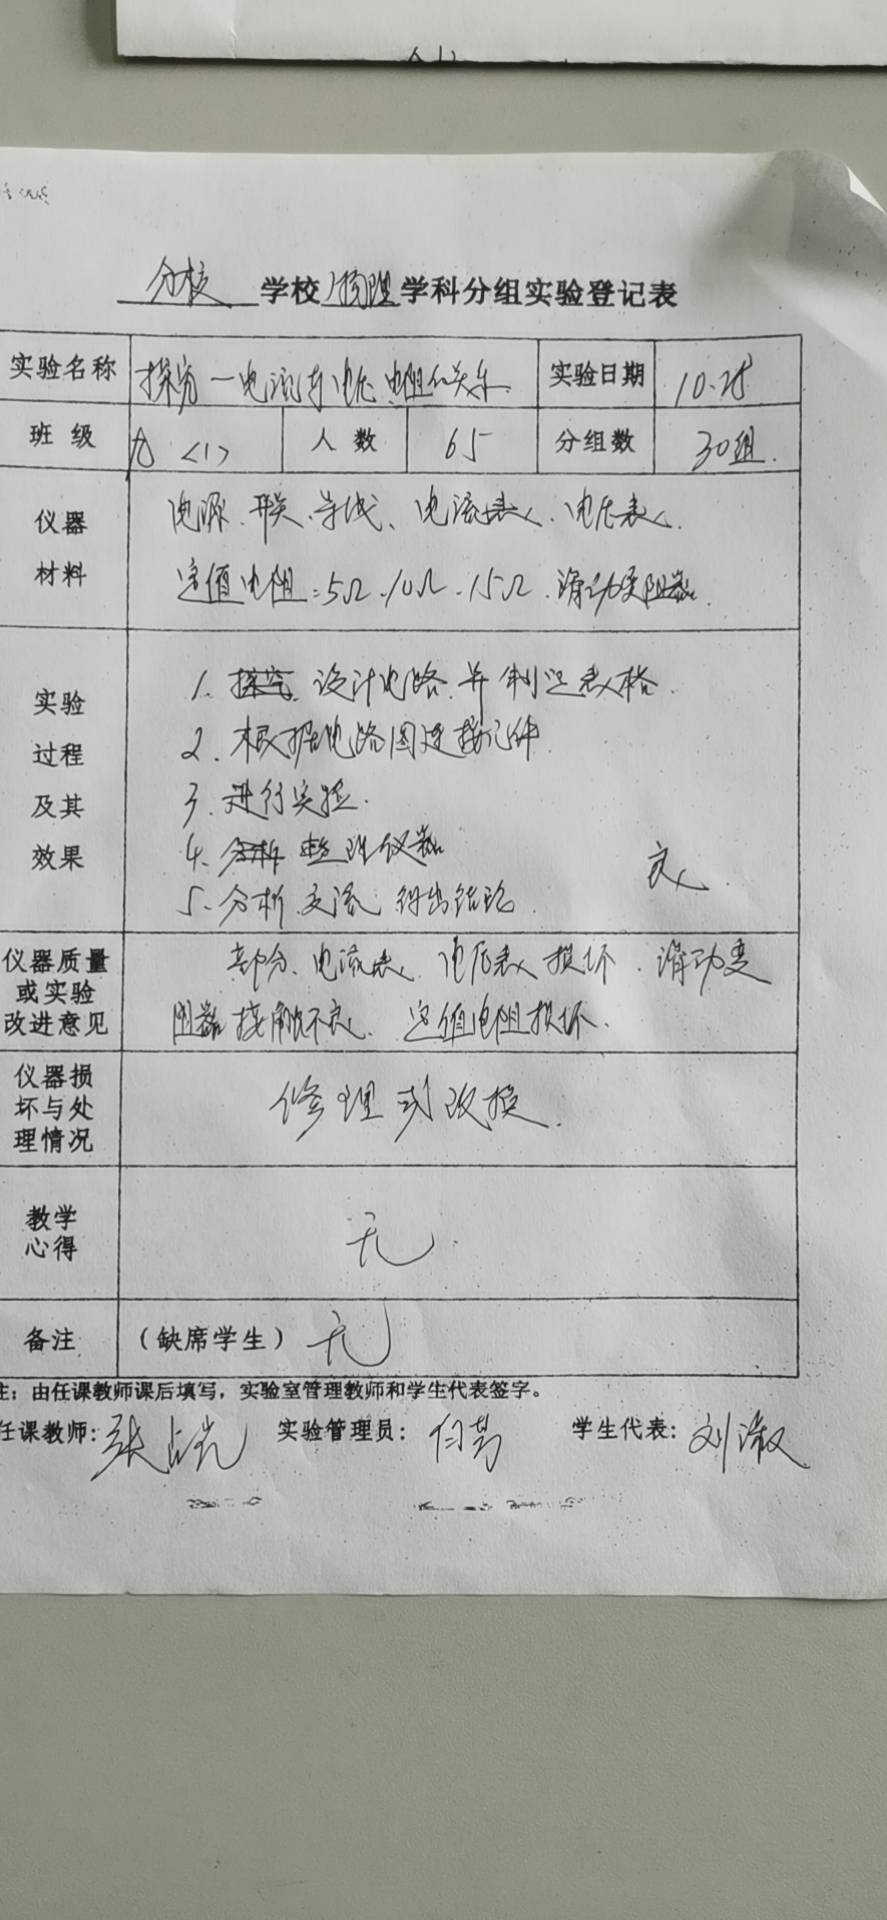 分校 学校 物理 学科分组实验登记表
实验名称 探究一电流与电压、电阻的关系 实验日期 10.25
班 级 九<1> 人 数 65 分组数 30组.
仪器材料
电源、开关、导线、电流表、电压表、
定值电阻:5Ω、10Ω、15Ω、滑动变阻器.
实验过程及其效果
1、设计电路并制定表格.
2、根据电路图连接元件
3、进行实验.
4、整理仪器
良.
5、分析、交流、得出结论.
仪器质量或实验改进意见
部分、电流表、电压表损坏、滑动变
阻器接触不良、定值电阻损坏.
仪器损坏与处理情况
修理或改换.
教学心得
无.
备注 (缺席学生) 无
注:由任课教师课后填写,实验室管理教师和学生代表签字。
任课教师: 实验管理员: 学生代表: